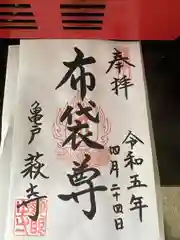 奉拝
令和五年
四月二十四日
布袋尊
亀戸
萩寺